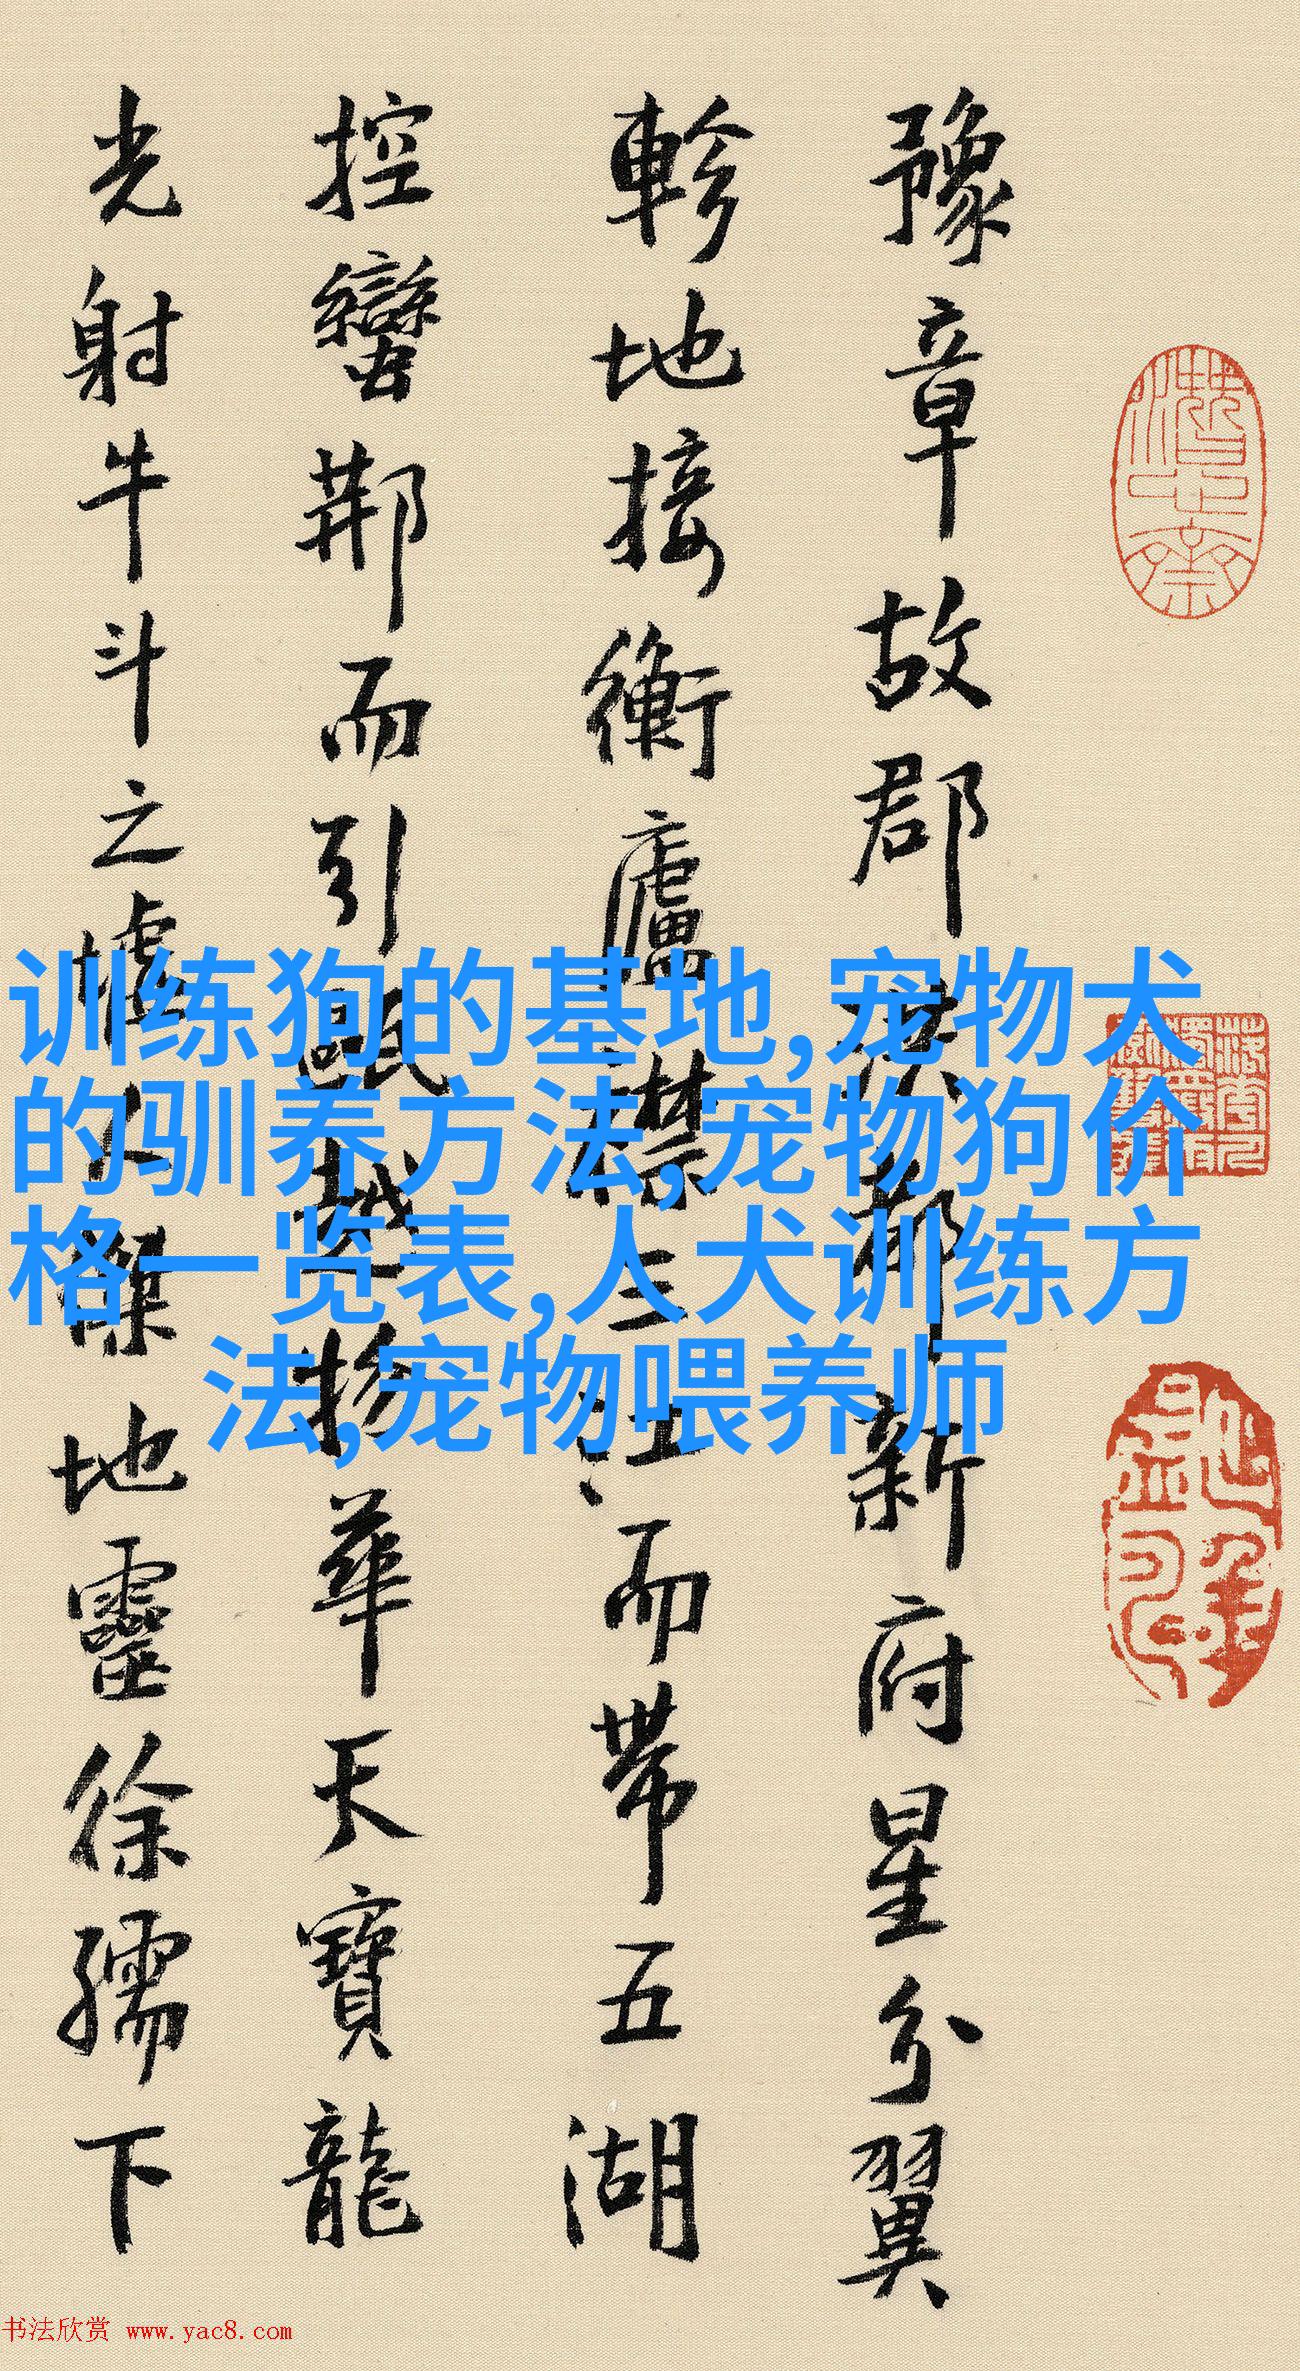 豫章故郡洪都新府星分翼
軫地接衡廬襟三江而帶五湖
控蠻荆而引甌越物華天寶龍
光射牛斗之墟人傑地靈徐孺下
训练狗的基地,宠物犬
的驯养方法,宠物狗价
格一览表,人犬训练方
法,宠物喂养师
书法欣赏 www.yac8.com